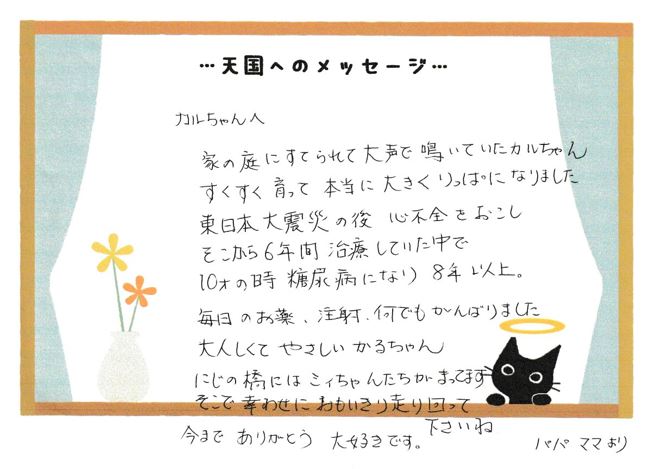 …天国へのメッセージ…
カルちゃんへ
家の庭にすてられて大声で鳴いていたカルちゃん
すくすく育って本当に大きくりっぱになりました
東日本大震災の後 心不全をおこし
そこから6年間治療していた中で
10才の時 糖尿病になり 8年以上。
毎日のお薬、注射、何でもがんばりました
大人しくて やさしい かるちゃん
にじの橋には ミィちゃんたちがまってます
そこで幸わせに おもいきり走り回って
下さいね
今まで ありがとう 大好きです。
パパ ママより